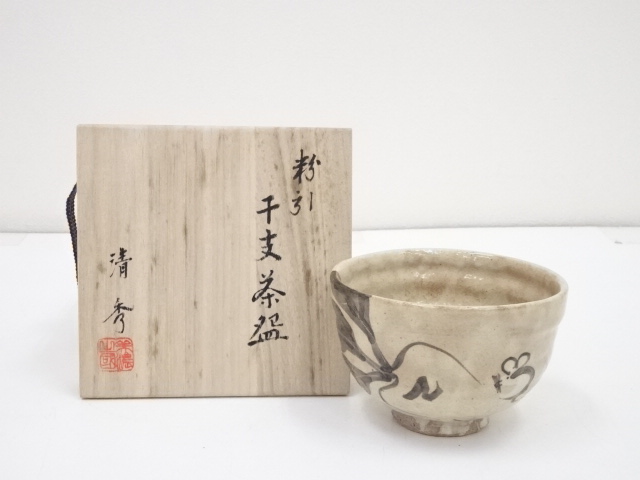 粉引
干支茶盌
清秀